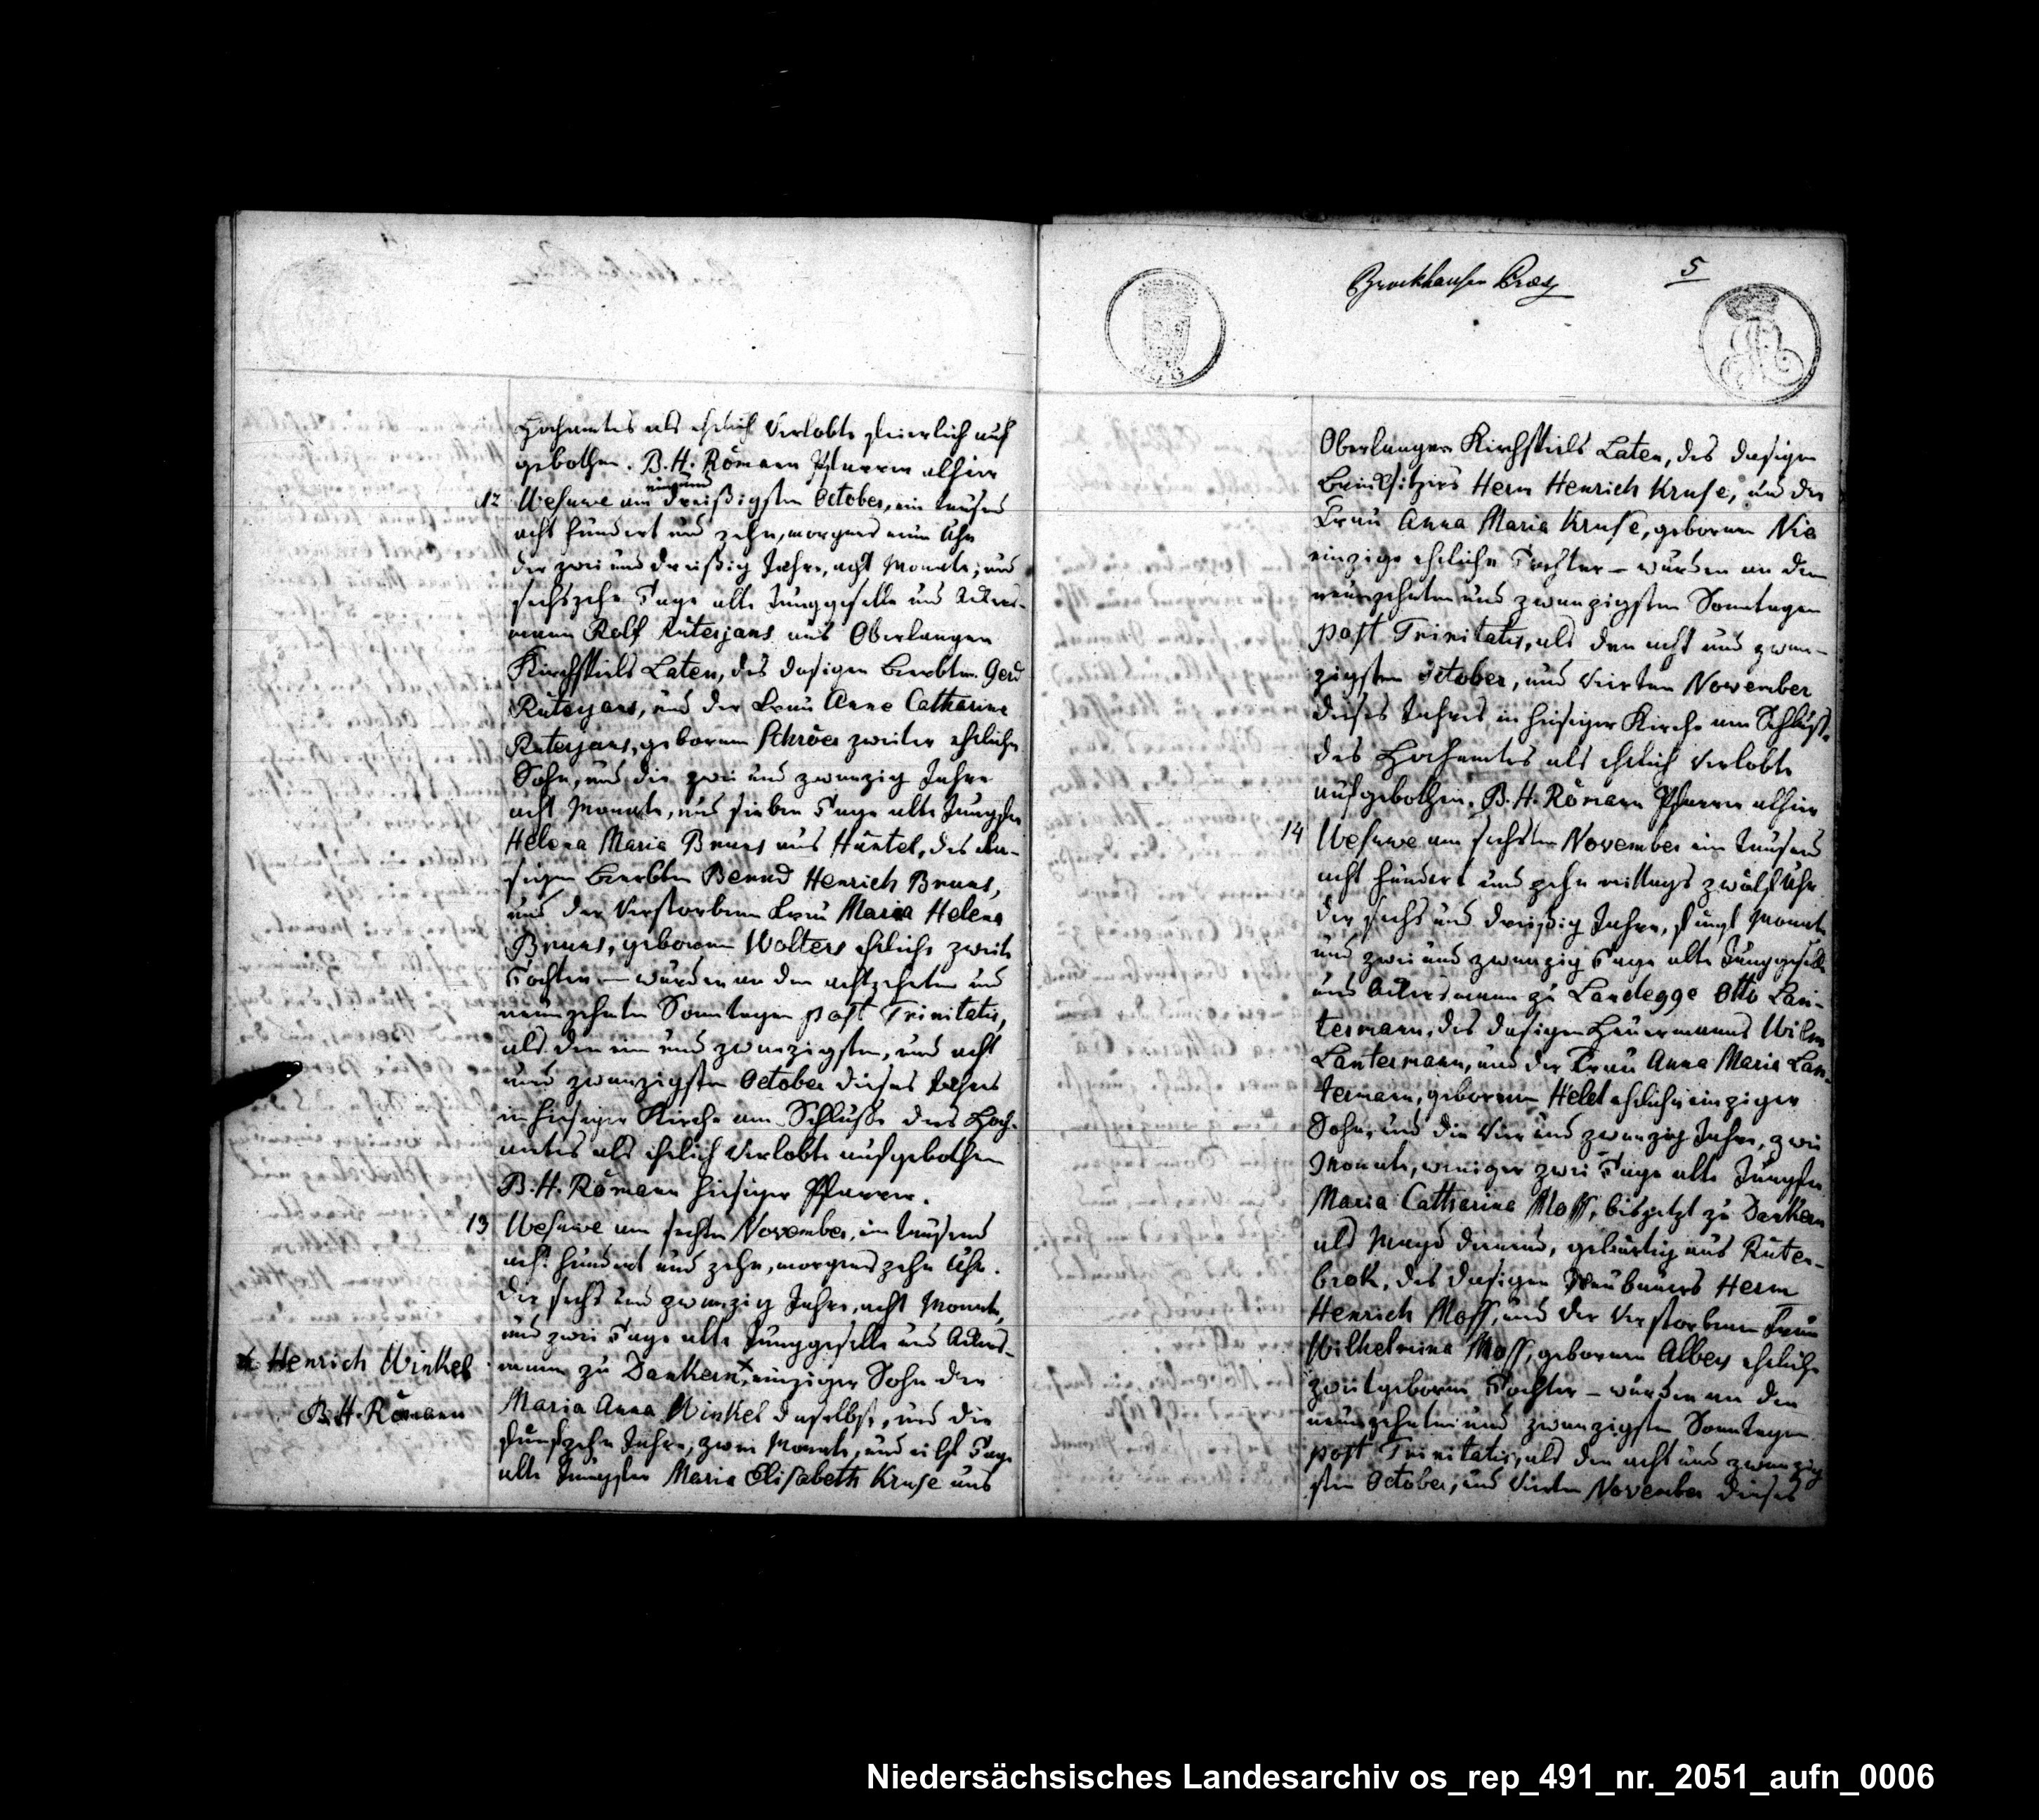 Hochamtes als ehelich Verlobte feierlich auf
gebothen. B. H. Römann Pfarrer alhier
12 Wesuwe am ein und dreißigsten October, ein tausend
acht hundert und zehn, morgens neun Uhr
der zwei und dreißig Jahre, acht Monate, und
sechszehn Tage alte Junggeselle und Ackers-
mann Rolf Rüterjans aus Oberlangen
Kirchspiels Laten, des dasigen Beerbten Gerd
Rüterjans, und der Frau Anna Catharina
Rüterjans, gebornen Schröer zweiter eheliche
Sohn, und die zwei und zwanzig Jahre
acht Monate, und sieben Tage alte Jungfer
Helena Maria Bruns aus Hüntel, des da-
sigen Beerbten Bernd Henrich Bruns,
und der Verstorbenen Frau Maria Helena
Bruns, gebornen Wolters eheliche zweite
Tochter — wurden an den achtzehnten und
neunzehnten Sonntagen post Trinitatis,
als den ein und zwanzigsten, und acht
und zwanzigsten October dieses Jahres
in hiesiger Kirche am Schluße des Hoch-
amtes als ehelich Verlobte aufgebothen
B. H. Römann hiesiger Pfarrer.
13 Wesuwe am sechsten November, ein tausend
acht hundert und zehn, morgens zehn Uhr.
Der sechs und zwanzig Jahre, acht Monate,
und zwei Tage alte Junggeselle und Ackers-
mann zu Dankern, x einziger Sohn der
Maria Anna Winkel daselbst, und die
fünfzehn Jahre, zwei Monate, und eilf Tage
alte Jungfer Maria Elisabeth Kruse aus
x Henrich Winkel
B. H. Römann
Brockhausen
5
Oberlangen Kirchspiels Laten, des dasigen
Herm Henrich Kruse, und der
Frau Anna Maria Kruse, gebornen Nie
einzige eheliche Tochter — wurden an den
neunzehnten und zwanzigsten Sonntagen
post Trinitatis, als den acht und zwan-
zigsten October, und Vierten November
dieses Jahres in hiesiger Kirche am Schluße
des Hochamtes als ehelich Verlobte
aufgebothen. B. H. Römann Pfarrer alhier
14 Wesuwe am sechsten November ein tausend
acht hundert und zehn mittags zwölf Uhr
der sechs und dreißig Jahre, fünf Monate
und zwei und zwanzig Tage alte Junggeselle
und Ackersmann zu Landegge Otto Lan-
termann, des dasigen Heuermanns Wilm
Lantermann, und der Frau Anna Maria Lan-
termann, gebornen Held ehelicher einziger
Sohn, und die Vier und zwanzig Jahre, zwei
Monate, weniger zwei Tage alte Jungfer
Maria Catharina Moss, bis jetzt zu Dankern
als Magd dienend, gebürtig aus Rüten-
brok, des dasigen Neubauers Herm
Henrich Moss, und der Verstorbenen Frau
Wilhelmina Moss, gebornen Albers eheliche
zweitgeborne Tochter — wurden an den
neunzehnten und zwanzigsten Sonntagen
post Trinitatis, als den acht und zwanzig
sten October, und Vierten November dieses
Niedersächsisches Landesarchiv os_rep_491_nr._2051_aufn_0006